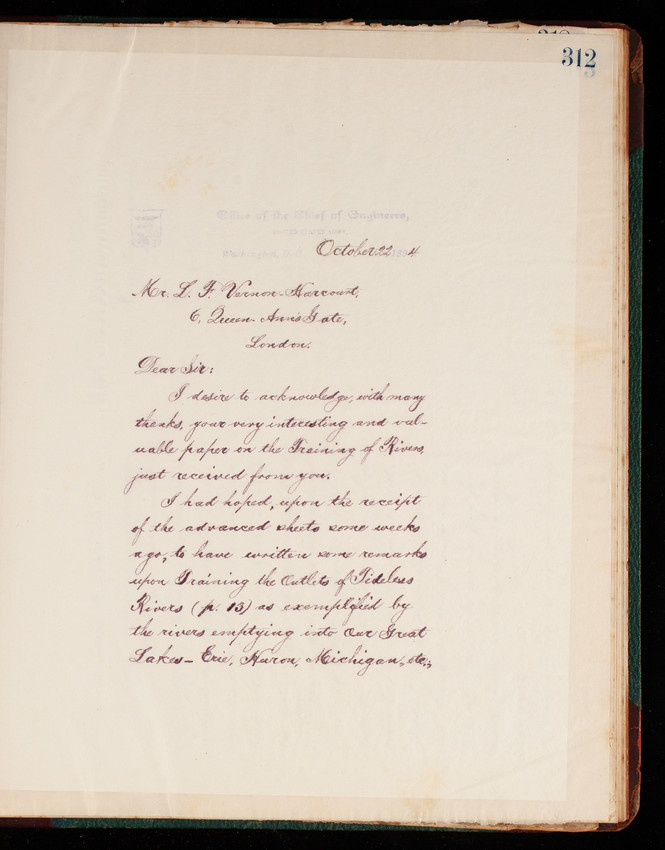 312
Office of the Chief of Engineers,
UNITED STATES ARMY
October 22 4
Mr. L. F. Vernon-Harcourt,
6, Queen-Anne's Gate,
London.
Dear Sir:
I desire to acknowledge, with many
thanks, your very interesting and val-
uable paper on the Training of Rivers,
just received from you.
I had hoped, upon the receipt
of the advanced sheets some weeks
ago, to have written some remarks
upon Training the Outlets of Tideless
Rivers (p. 13) as exemplified by
the rivers emptying into our Great
Lakes - Erie, Huron, Michigan, etc.,